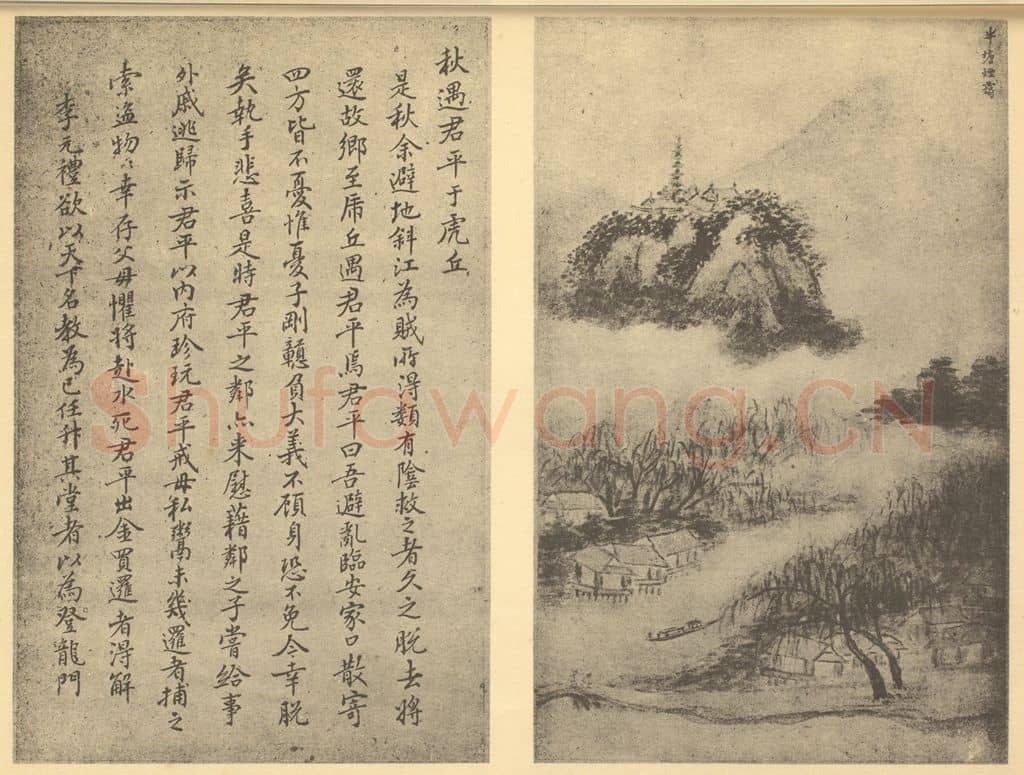 半塘煙
秋遇君平于虎丘
是秋余避地斜江為賊所得類有陰救之者久之脫去將
還故鄉至虎丘遇君平焉君平曰吾避亂臨安家口散寄
四方皆不憂惟憂子剛戇負大義不顧身恐不免今幸脫
矣執手悲喜是時君平之鄰亦来慰藉鄰之子嘗給事
外戚逃歸示君平以内府珍玩君平戒毋私鬻未幾邏者捕之
索盜物〻幸存父母懼將赴水死君平出金買邏者得解
李元禮欲以天下名教為己任升其堂者以為登龍門
Shufawang.CN